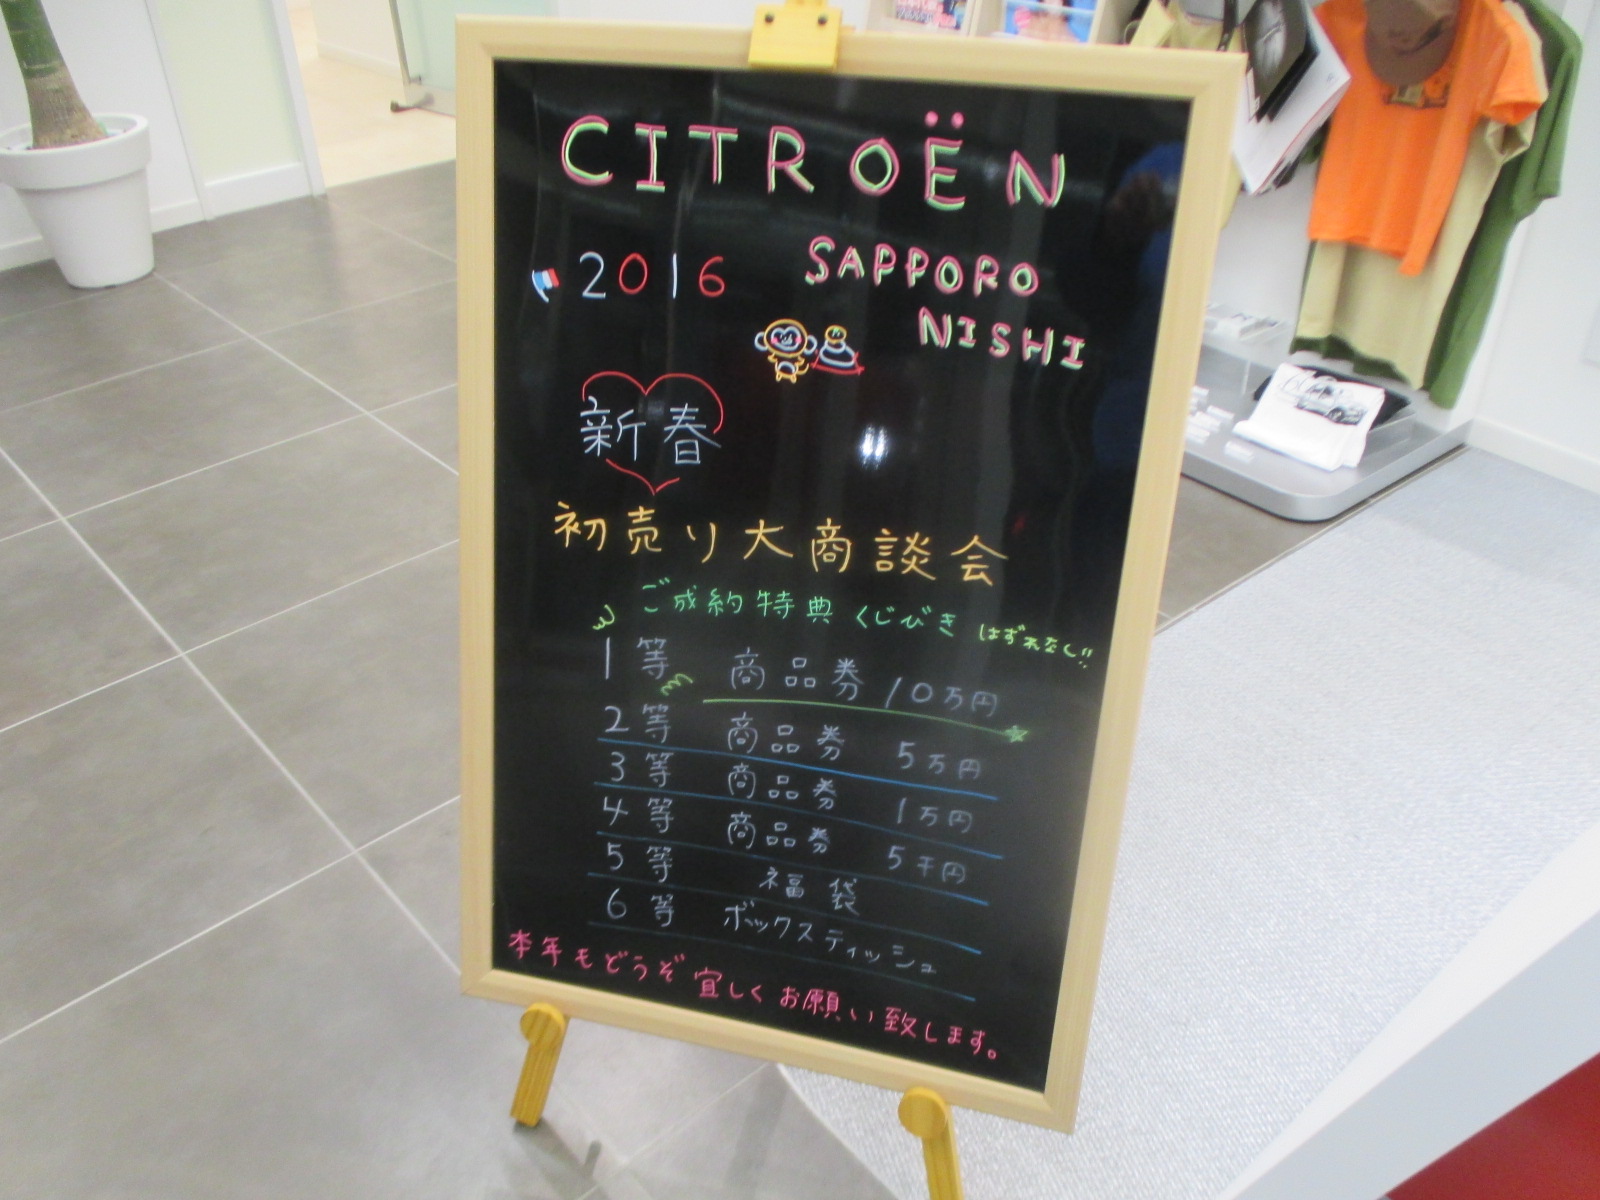 CITROËN
2016 SAPPORO
NISHI
新春
初売り大商談会
ご成約特典 くじびき はずれなし!!
1等 商品券 10万円
2等 商品券 5万円
3等 商品券 1万円
4等 商品券 5千円
5等 福袋
6等 ボックスティッシュ
本年もどうぞ宜しくお願い致します。